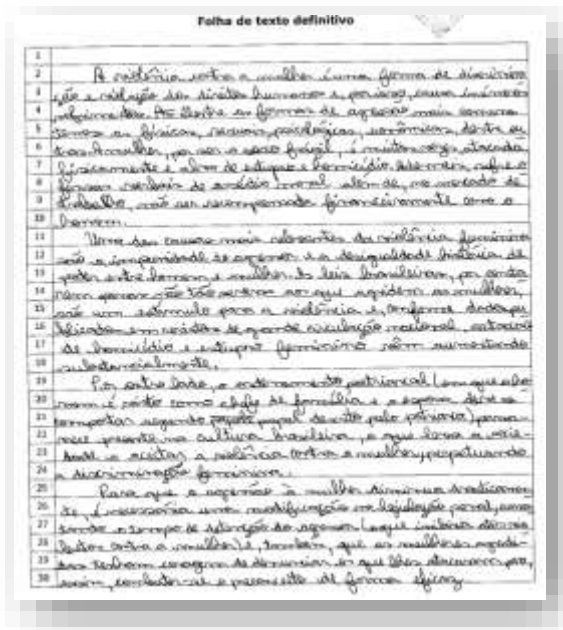 Folha de texto definitivo
1
2 A violência contra a mulher é uma forma de discrimina
3 ção e violação dos direitos humanos e, por isso, causa inúmeros
4 sofrimentos. Dentre as formas de agressão mais comuns
5 temos as físicas, sexuais, psicológicas, econômicas, dentre ou
6 tras. A mulher, por ser o sexo frágil, é muitas vezes atacada
7 fisicamente e alvo de estupro e homicídio. Ademais, sofre
8 formas verbais de assédio moral além de, no mercado de
9 trabalho, não ser recompensada financeiramente como o
10 homem.
11 Uma das causas mais relevantes da violência feminina
12 são a impunidade do agressor e a desigualdade histórica de
13 poder entre homem e mulher. As leis brasileiras, por
14 penas tão aos que agridem as mulheres,
15 são um estímulo para a violência e, conforme dados pu
16 blicados em revistas de grande circulação nacional,
17 de homicídio e estupro feminino vêm aumentando
18 substancialmente.
19 Por outro lado, o ordenamento patriarcal (em que o ho
20 mem é visto como chefe de família e a esposa deve se
21 comportar segundo papel descrito pelo patriarca) perma-
22 nece presente na cultura brasileira, o que leva a socie-
23 dade a aceitar a violência contra a mulher, perpetuando
24 a discriminação feminina.
25 Para que a agressão à mulher diminua drasticamen
26 te, é necessária uma modificação na legislação penal, aumen
27 tando o tempo de detenção do agressor (o que inibiria atos vio
28 lentos contra a mulher) e, também, que as mulheres agredi-
29 das tenham coragem de denunciar os que lhes atacaram para,
30 assim, combater-se o preconceito de forma eficaz.